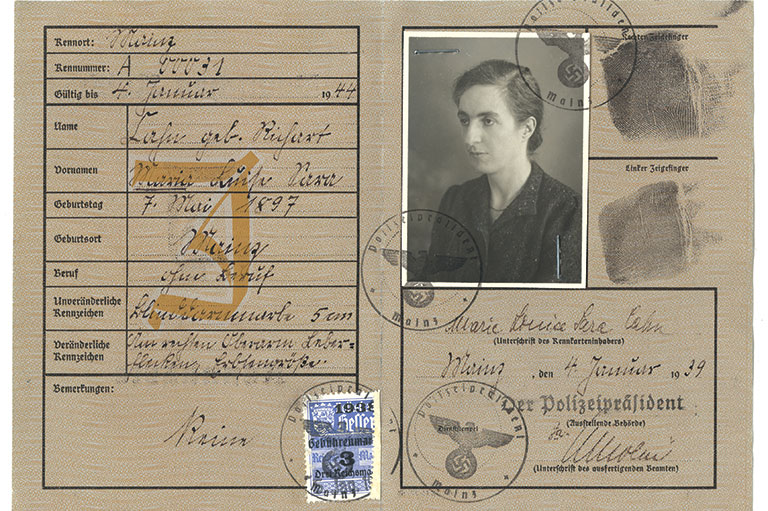 Kennort: Mainz
Kennummer: A 00031
Gültig bis 4. Januar 1944
Name Cahn geb. Richart
Vornamen Maria Luise Sara
Geburtstag 7. Mai 1897
Geburtsort Mainz
Beruf ohne Beruf
Unveränderliche Kennzeichen Blinddarmnarbe 5 cm
Veränderliche Kennzeichen Am rechten Oberarm Leberflecken Erbsengröße.
Bemerkungen:
Keine
J
1938
Hessen
Gebührenmarke
3
Drei Reichsmark
Polizeipräsident
Mainz
Rechter Zeigefinger
Linker Zeigefinger
Polizeipräsident
Mainz
Polizeipräsident
Mainz
Marie Louise Sara Cahn
(Unterschrift des Kennkarteninhabers)
Mainz, den 4. Januar 1939
Der Polizeipräsident
(Ausstellende Behörde)
Dienststempel
Polizeipräsident
Mainz
(Unterschrift des ausfertigenden Beamten)